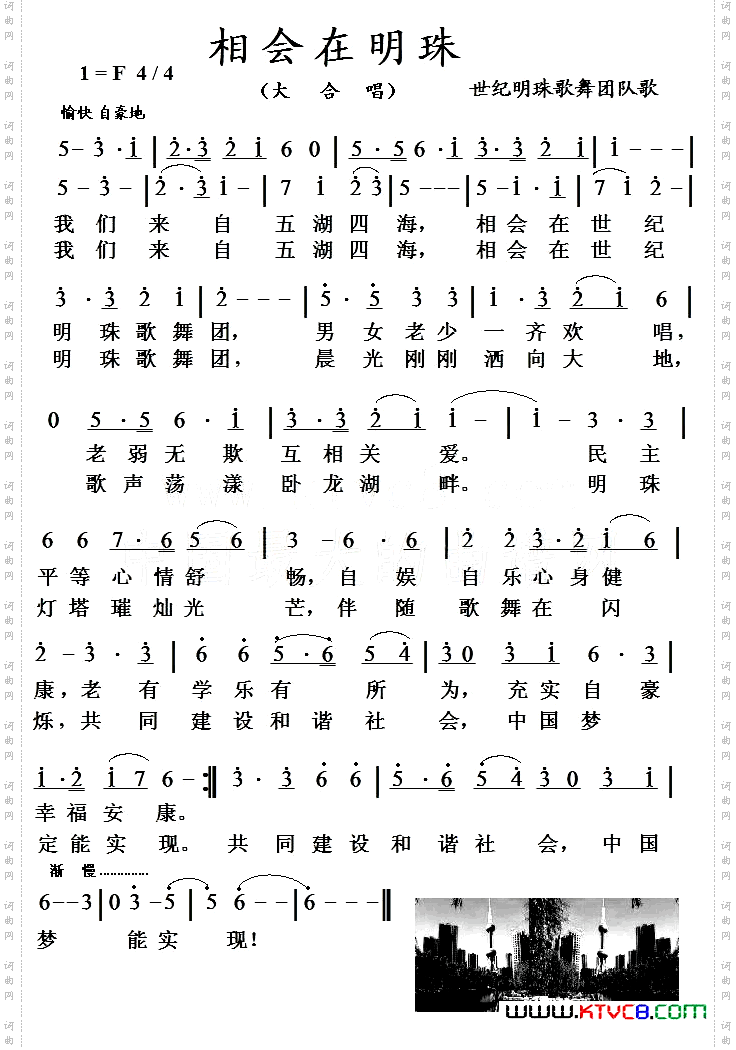 相会在明珠
1=F 4/4
(大 合 唱)
世纪明珠歌舞团队歌
愉快 自豪地
5- 3 · i | 2·3 2 i 6 0 | 5·5 6·i 3·3 2 i | i - - - |
5 - 3 - | 2·3 i - | 7 i 2 3 | 5 - - - | 5 - i · i | 7 i 2 - |
我们来自五湖四海, 相会在世纪
我们来自五湖四海, 相会在世纪
3 · 3 2 i | 2 - - - | 5 · 5 3 3 | i · 3 2 i 6 |
明珠歌舞团, 男女老少一齐欢唱,
明珠歌舞团, 晨光刚刚洒向大地,
0 5·5 6·i | 3·3 2 i i - | i - 3·3 |
老弱无欺互相关爱。 民主
歌声荡漾卧龙湖畔。 明珠
6 6 7·6 5 6 | 3 - 6·6 | 2 2 3·2 i 6 |
平等心情舒畅,自娱自乐心身健
灯塔璀灿光芒,伴随歌舞在闪
2 - 3·3 | 6 6 5·6 5 4 | 3 0 3 i 6·3 |
康,老有学乐有所为, 充实自豪
烁,共同建设和谐社会, 中国梦
i·2 i 7 6 - :| 3·3 6 6 | 5·6 5 4 3 0 3 i |
幸福安康。
定能实现。共同建设和谐社会, 中国
渐 慢..............
6 - - 3 | 0 3 - 5 | 5 6 - - | 6 - - - |
梦 能实现!
www.KTVC8.com
词曲网
词曲网